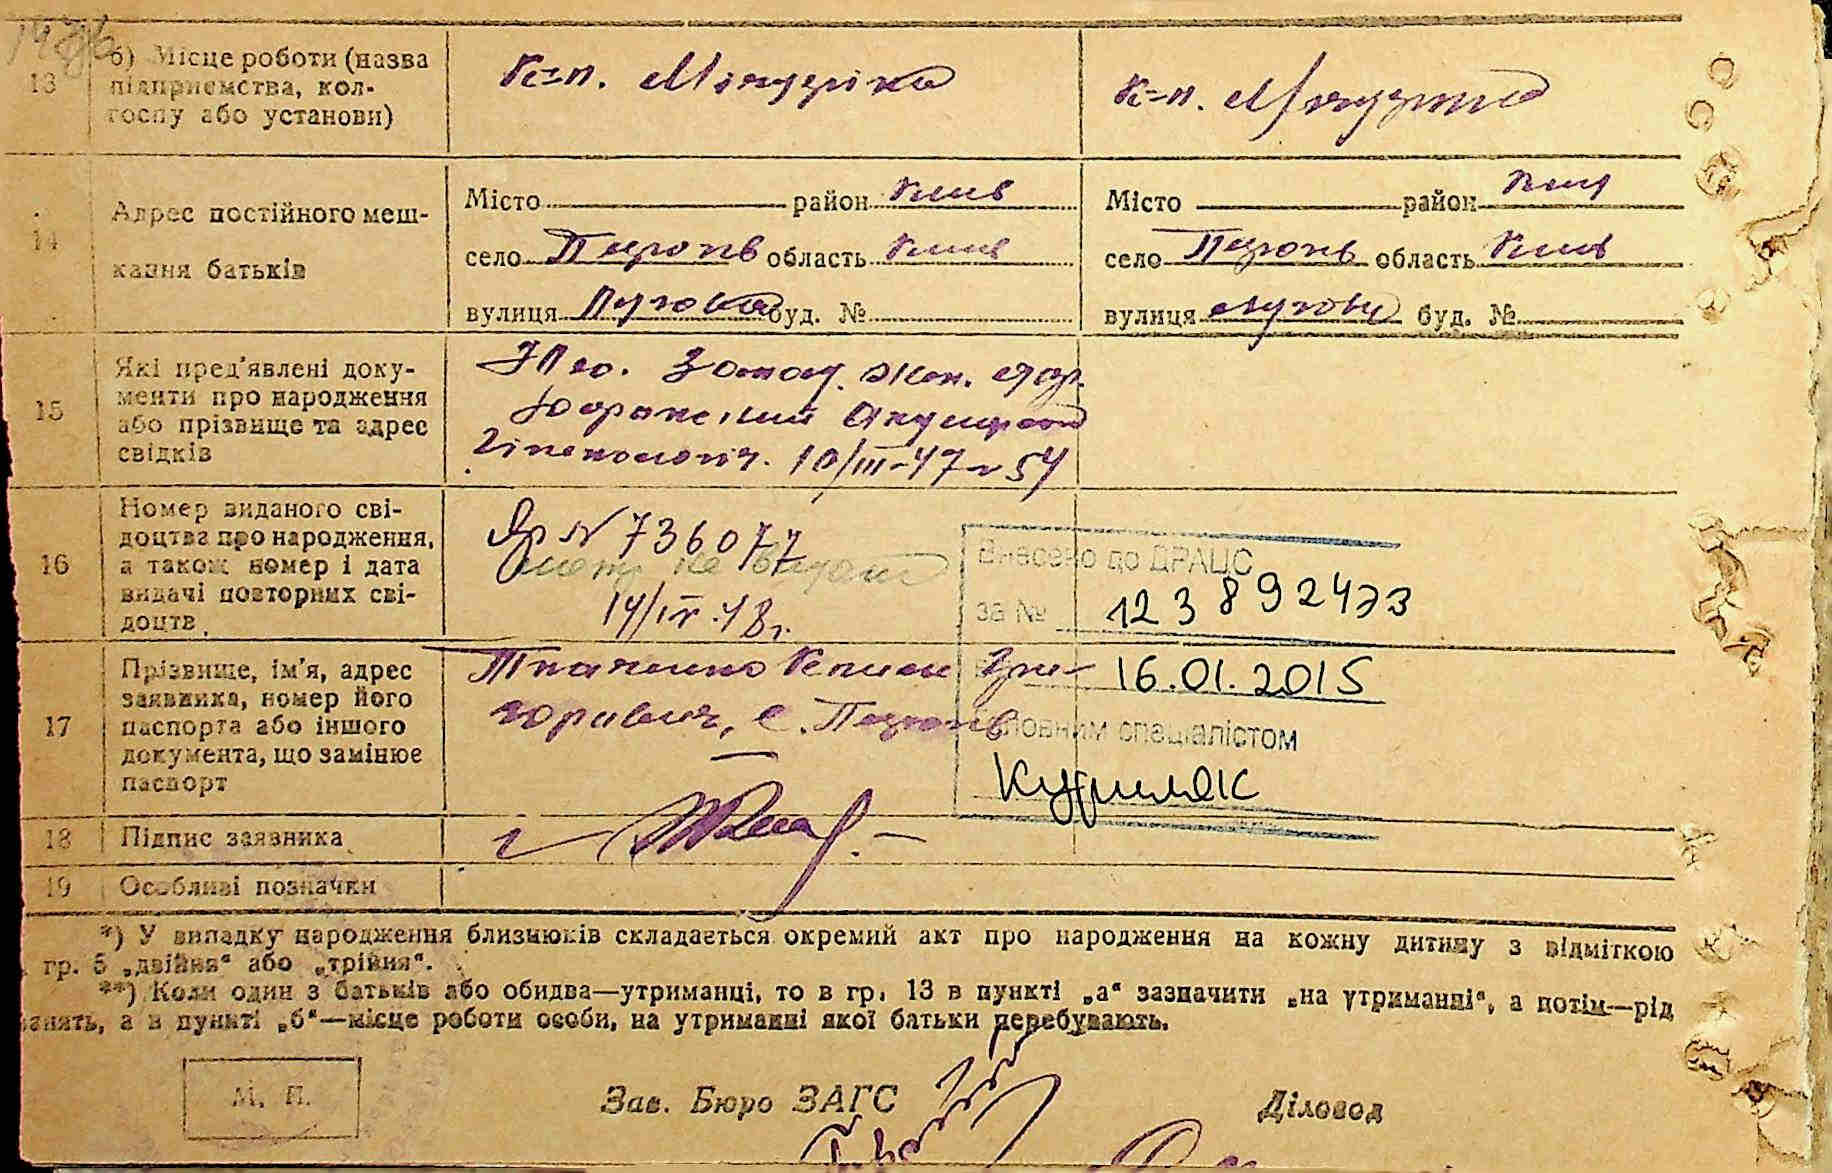 13
б) Місце роботи (назва
підприємства, кол-
госпу або установи)
К=п. Мічуріна
К=п. Мічуріна
14
Адрес постійного меш-
кання батьків
Місто район Київ
село область Київ
вулиця Лугова буд. №
Місто район Київ
село область Київ
вулиця Лугова буд. №
15
Які пред'явлені доку-
менти про народження
або прізвище та адрес
свідків
10/III-47 54
16
Номер виданого сві-
доцтва про народження,
а також номер і дата
видачі повторних сві-
доцтв
N 736077
не видано
14/IV-48г.
Внесено до ДРАЦС
за № 123892473
16.01.2015
Головним спеціалістом
Куриляк
17
Прізвище, ім'я, адрес
заявника, номер його
паспорта або іншого
документа, що замінює
паспорт
Ткаченко Гри-
горович, с.
18
Підпис заявника
19
Особливі позначки
*) У випадку народження близнюків складається окремий акт про народження на кожну дитину з відміткою
гр. 5 „двійня“ або „трійня“.
**) Коли один з батьків або обидва—утриманці, то в гр. 13 в пункті „а“ зазначити „на утриманні“, а потім—рід
занять, а в пункті „б“—місце роботи особи, на утриманні якої батьки перебувають.
М. П.
Зав. Бюро ЗАГС
Діловод